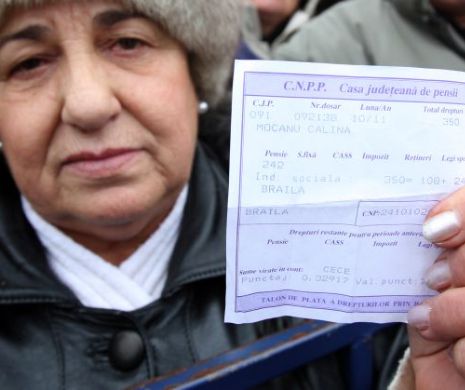 C.N.P.P. Casa județeană de pensii
C.J.P. Nr.dosar Luna/An Total drepturi
091 092138 10/11 350
MOCANU CALINA
Pensie S.fixă CASS Impozit Rețineri Legi spe
242
Ind. sociala 350= 108+ 24
BRAILA
BRAILA CNP:
Drepturi restante pentru perioade anterioare
Pensie CASS Impozit Legi
Sume virate în cont: CECE
Punctaj: 0.32917 Val.punct:
TALON DE PLATA A DREPTURILOR PRIN